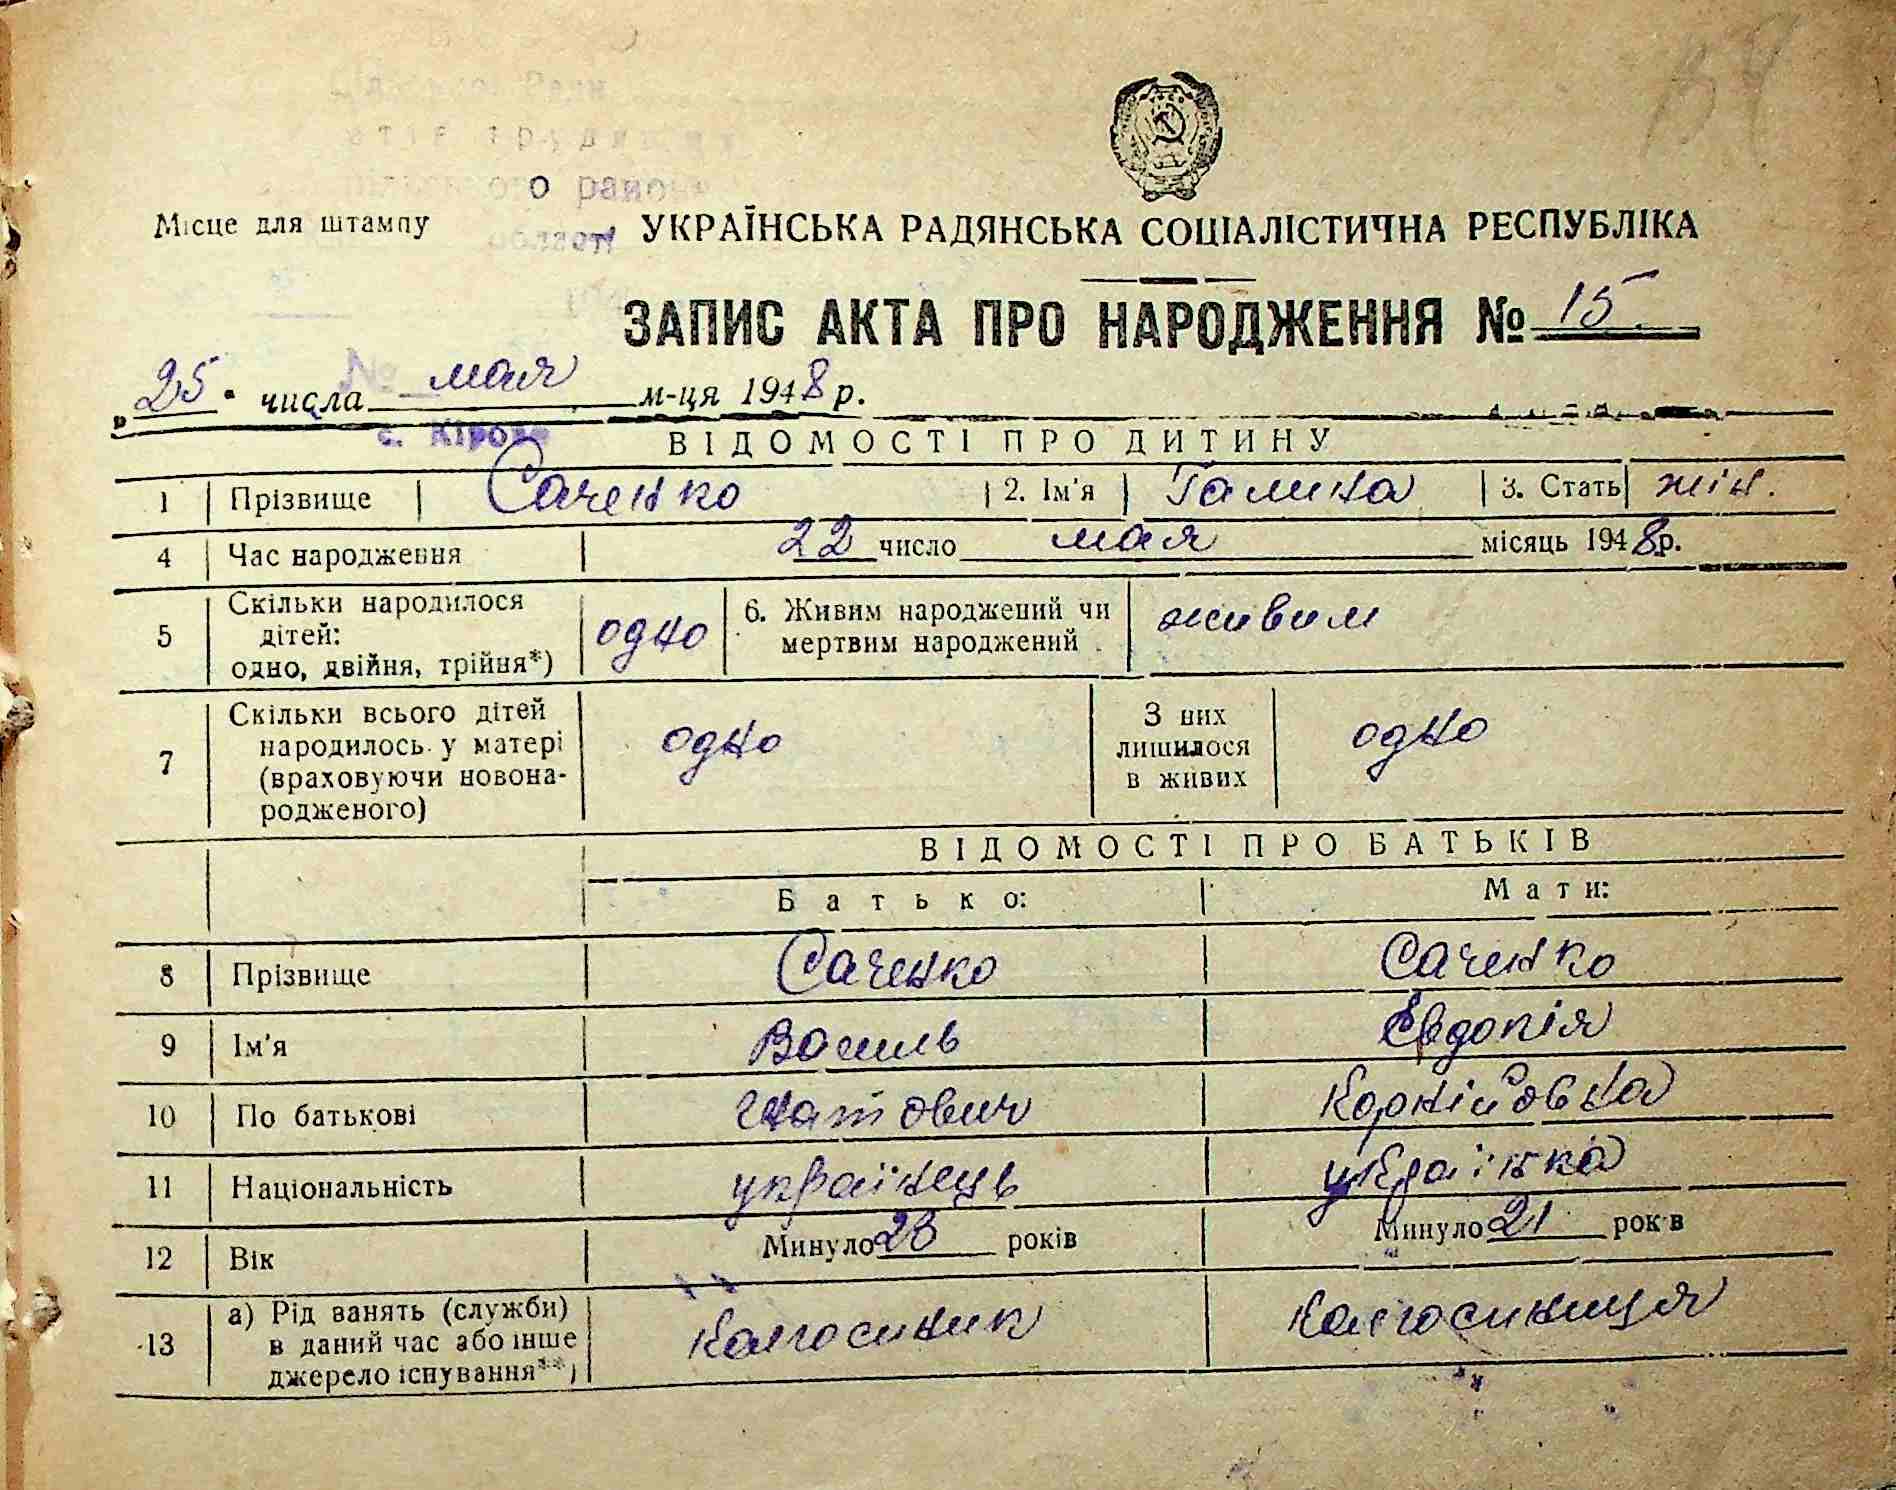 о район
Місце для штампу
області
УКРАЇНСЬКА РАДЯНСЬКА СОЦІАЛІСТИЧНА РЕСПУБЛІКА
ЗАПИС АКТА ПРО НАРОДЖЕННЯ № 15.
№
„25" числа мая м-ця 1948 р.
с. Кірове
ВІДОМОСТІ ПРО ДИТИНУ
1 Прізвище Саченко 2. Ім'я Галина 3. Стать жін.
4 Час народження 22 число мая місяць 1948 р.
5 Скільки народилося дітей: одно, двійня, трійня*) одно 6. Живим народжений чи мертвим народжений живим
7 Скільки всього дітей народилось у матері (враховуючи новонародженого) одно З них лишилося в живих одно
ВІДОМОСТІ ПРО БАТЬКІВ
Батько: Мати:
8 Прізвище Саченко Саченко
9 Ім'я Василь Евдокія
10 По батькові Гнатович Корнійовна
11 Національність українець українка
12 Вік Минуло 23 років Минуло 21 років
13 а) Рід занять (служби) в даний час або інше джерело існування**) колгоспник колгоспниця